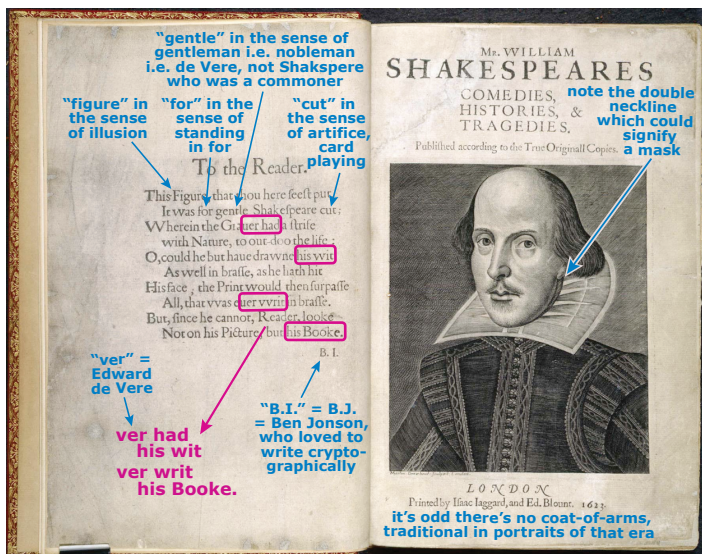 “gentle” in the sense of
gentleman i.e. nobleman
i.e. de Vere, not Shakspere
who was a commoner
“figure” in
the sense
of illusion
“for” in the
sense of
standing
in for
“cut” in
the sense
of artifice,
card
playing
To the Reader.
This Figure, that thou here ſeeſt put,
It was for gentle Shakeſpeare cut;
Wherein the Grauer had a ſtrife
with Nature, to out-doo the life :
O, could he but haue drawne his wit
As well in braſſe, as he hath hit
His face ; the Print would then ſurpaſſe
All, that vvas euer vvrit in braſſe.
But, ſince he cannot, Reader, looke
Not on his Picture, but his Booke.
B. I.
“ver” =
Edward
de Vere
ver had
his wit
ver writ
his Booke.
“B.I.” = B.J.
= Ben Jonson,
who loved to
write crypto-
graphically
Mr. WILLIAM
SHAKESPEARES
COMEDIES,
HISTORIES, &
TRAGEDIES.
Publiſhed according to the True Originall Copies.
note the double
neckline
which could
signify
a mask
LONDON
Printed by Iſaac Iaggard, and Ed. Blount. 1623.
it’s odd there’s no coat-of-arms,
traditional in portraits of that era